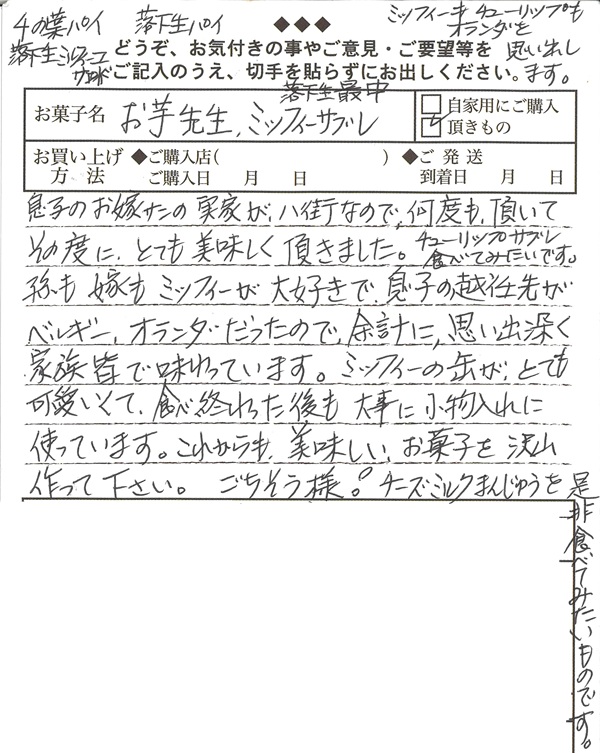 4の葉パイ 落下生パイ ◆◆◆ ミッフィーも チューリップも
オランダを
落下生ミルフィーユ
サンド
どうぞ、お気付きの事やご意見・ご要望等を 思い出し
ご記入のうえ、切手を貼らずにお出しください。 ます。
落下生最中
お菓子名 お芋先生、ミッフィーサブレ
自家用にご購入
頂きもの
お買い上げ方法 ◆ご購入店( ) ◆ご発送
ご購入日 月 日 到着日 月 日
息子のお嫁サンの実家が、八街なので、何度も、頂いて
その度に、とても美味しく頂きました。 チューリップサブレ
食べてみたいです。
孫も嫁もミッフィーが大好きで、息子の赴任先が
ベルギー、オランダだったので、余計に、思い出深く
家族皆で味わっています。ミッフィーの缶が、とても
可愛いくて、食べ終わった後も大事に小物入れに
使っています。これからも、美味しい、お菓子を沢山
作って下さい。 ごちそう様。 チーズミルクまんじゅうを是
非食べてみたいものです。